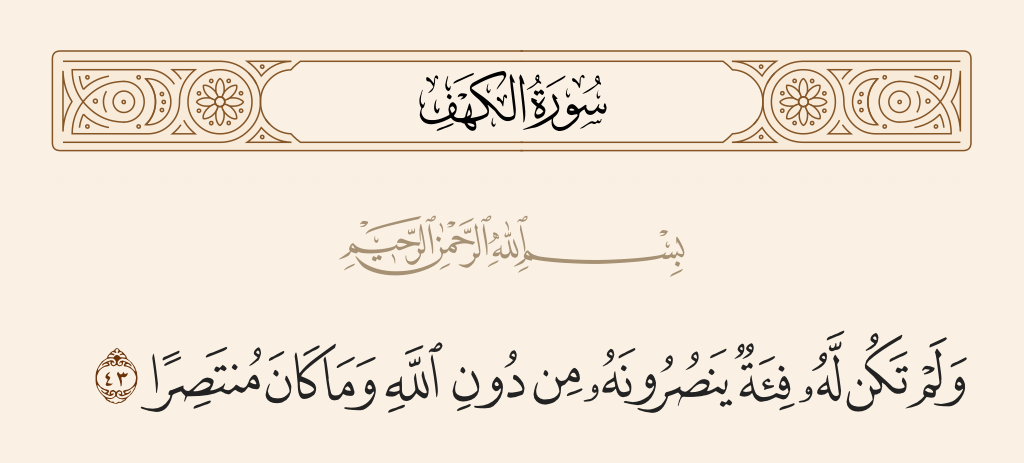 سُورَةُ الكَهْفِ
بِسْمِ ٱللَّهِ ٱلرَّحْمَٰنِ ٱلرَّحِيمِ
وَلَمْ تَكُن لَّهُۥ فِئَةٌ يَنصُرُونَهُۥ مِن دُونِ ٱللَّهِ وَمَا كَانَ مُنتَصِرًا ٤٣